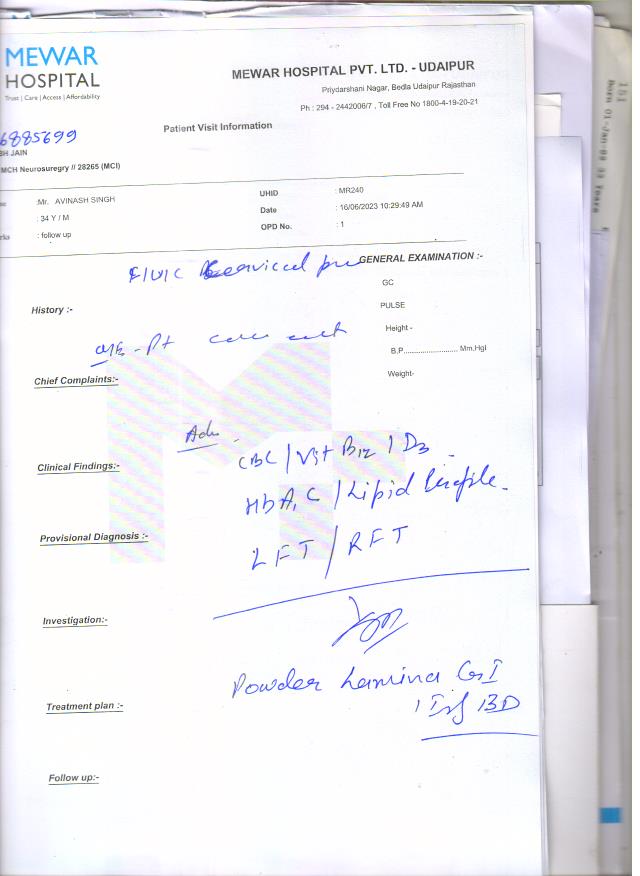 MEWAR
HOSPITAL
Trust | Care | Access | Affordability
MEWAR HOSPITAL PVT. LTD. - UDAIPUR
Priydarshani Nagar, Bedla Udaipur Rajasthan
Ph : 294 - 2442006/7 , Toll Free No 1800-4-19-20-21
6885699
Patient Visit Information
BH JAIN
MCH Neurosuregry // 28265 (MCI)
:Mr. AVINASH SINGH
UHID : MR240
: 34 Y / M
Date : 16/06/2023 10:29:49 AM
: follow up
OPD No. : 1
GENERAL EXAMINATION :-
GC
History :-
PULSE
Height -
O/E - Pt
B.P........................ Mm.Hgl
Chief Complaints:-
Weight-
Adv
CBC / Vit B12 / D3
Clinical Findings:-
HbA1C / Lipid Profile
Provisional Diagnosis :-
LFT / RFT
Investigation:-
Powder Lamina G I
Treatment plan :-
BD
Follow up:-
151
Born 01-Jan-89 33 Years